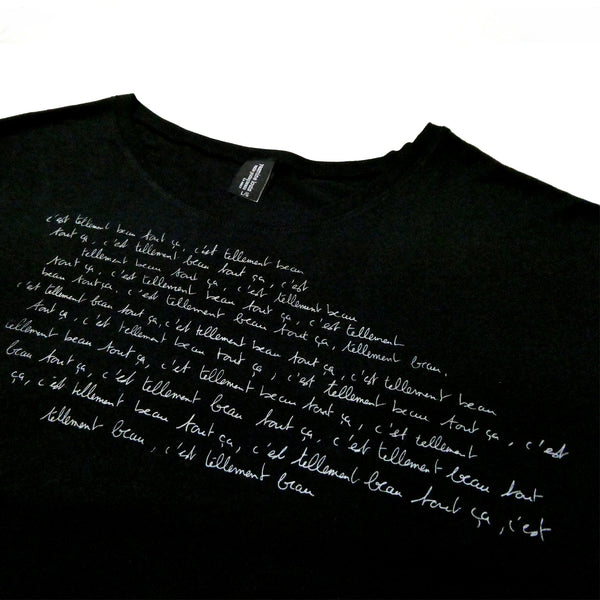 c'est tellement beau tout ça, c'est tellement beau
tout ça, c'est tellement beau tout ça, c'est
tellement beau tout ça, c'est tellement beau
tout ça, c'est tellement beau tout ça, c'est tellement
beau tout ça, c'est tellement beau tout ça, tellement beau.
c'est tellement beau tout ça, c'est tellement beau tout ça, c'est tellement beau
tout ça, c'est tellement beau tout ça, c'est tellement beau tout ça, c'est
tellement beau tout ça, c'est tellement beau tout ça, c'est tellement
beau tout ça, c'est tellement beau tout ça, c'est tellement beau tout
ça, c'est tellement beau tout ça, c'est tellement beau tout ça, c'est
tellement beau, c'est tellement beau